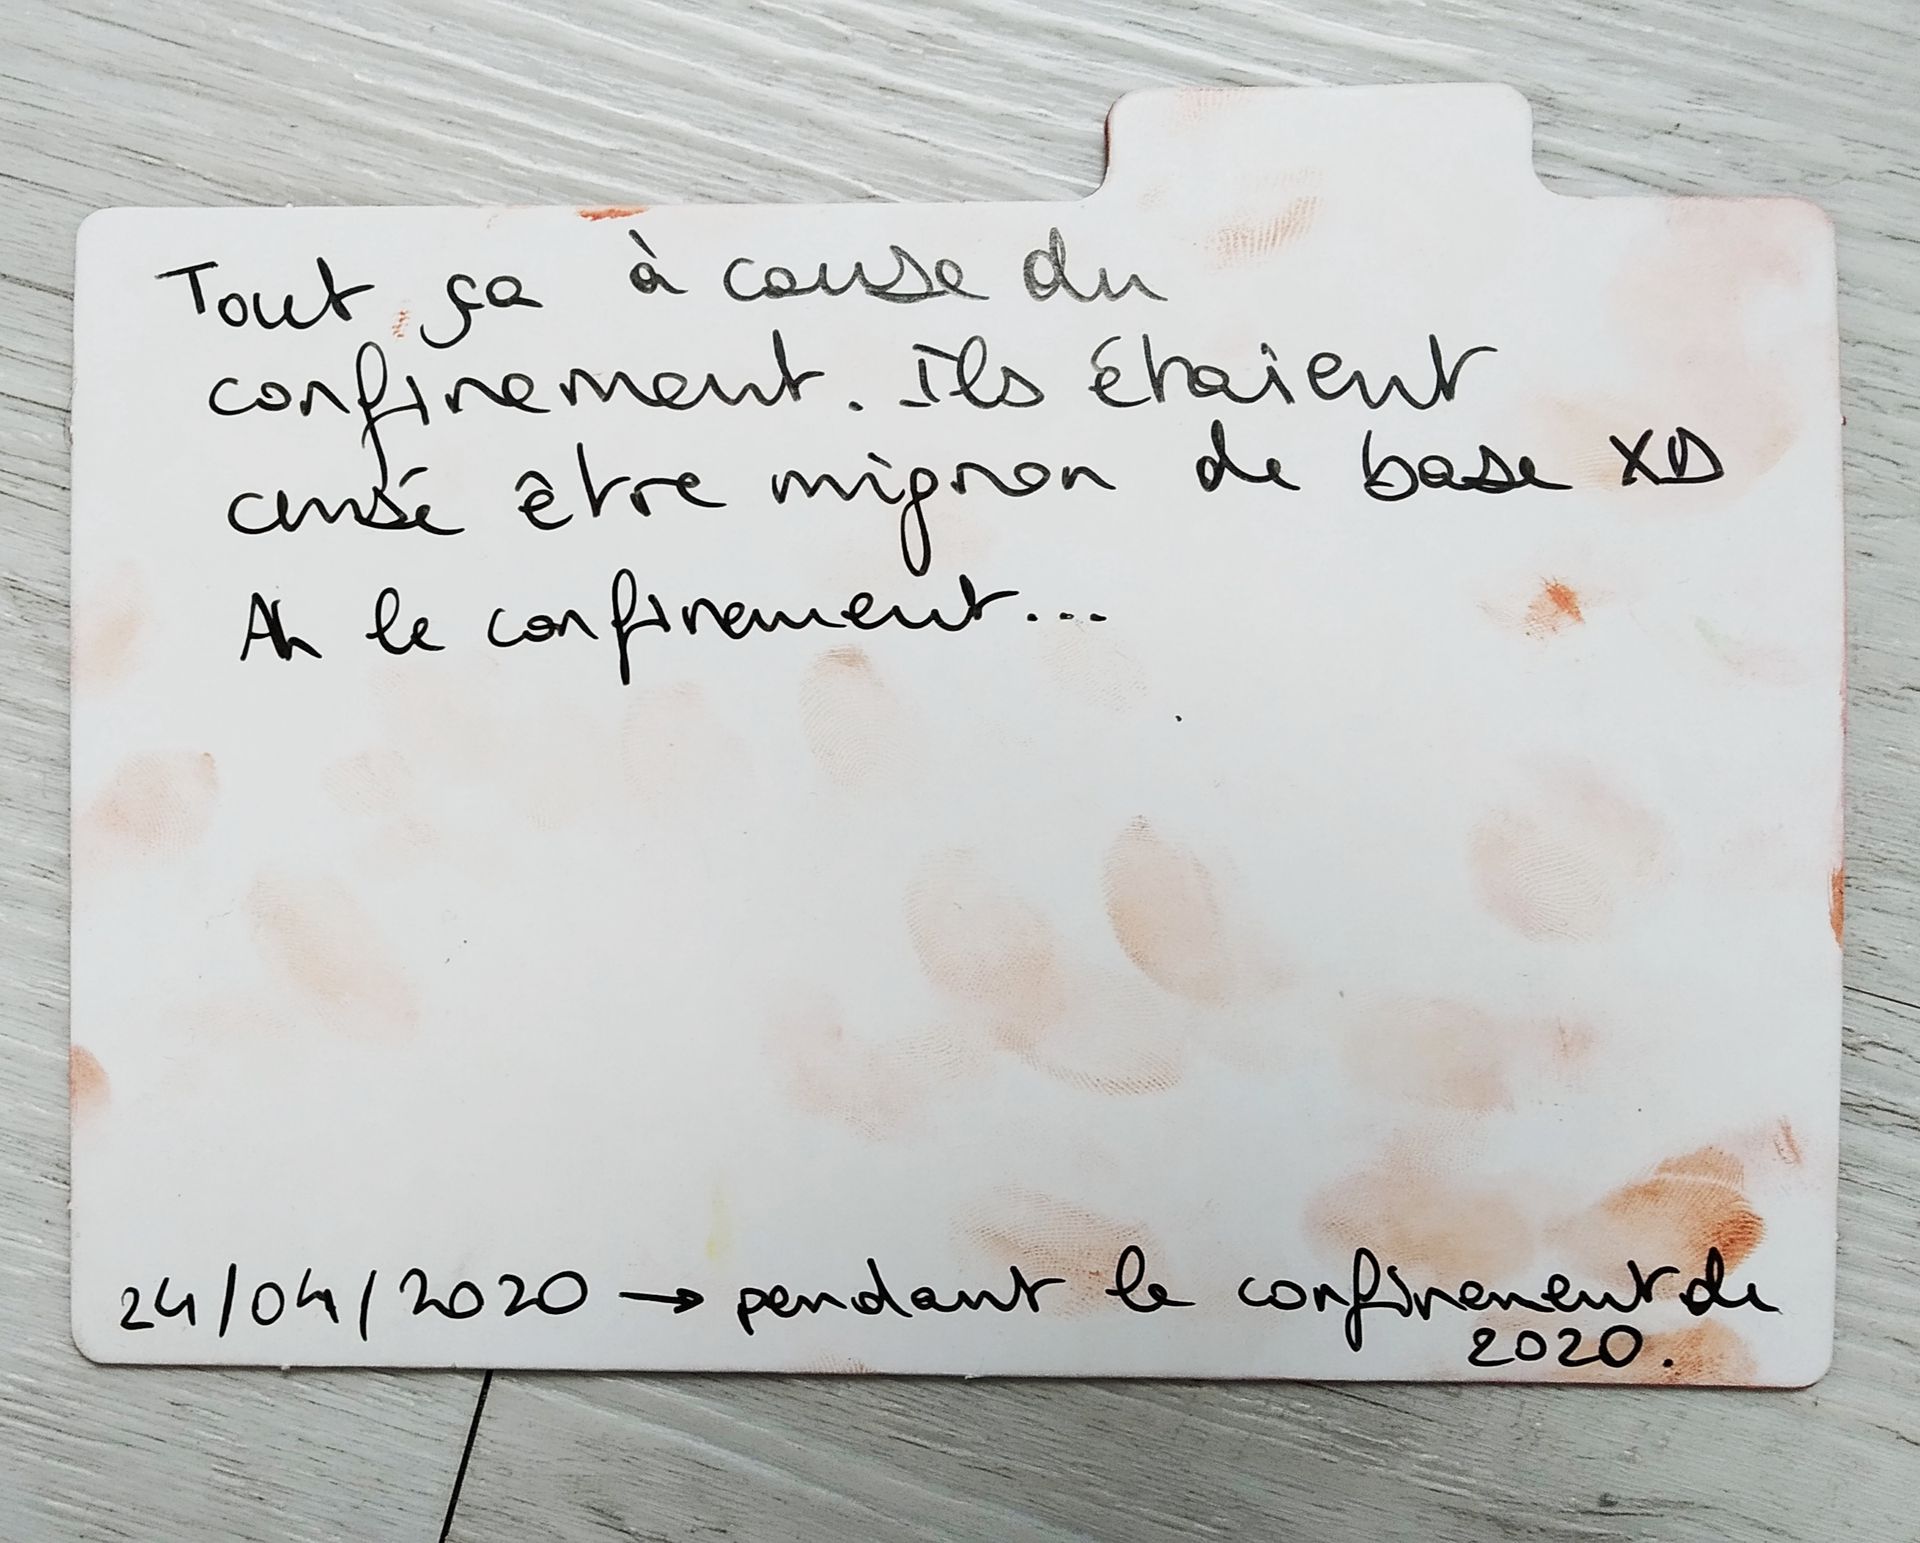 Tout ça à cause du
confinement. Ils étaient
censé être mignon de base XD
Ah le confinement...
24/04/2020 → pendant le confinement de
2020.